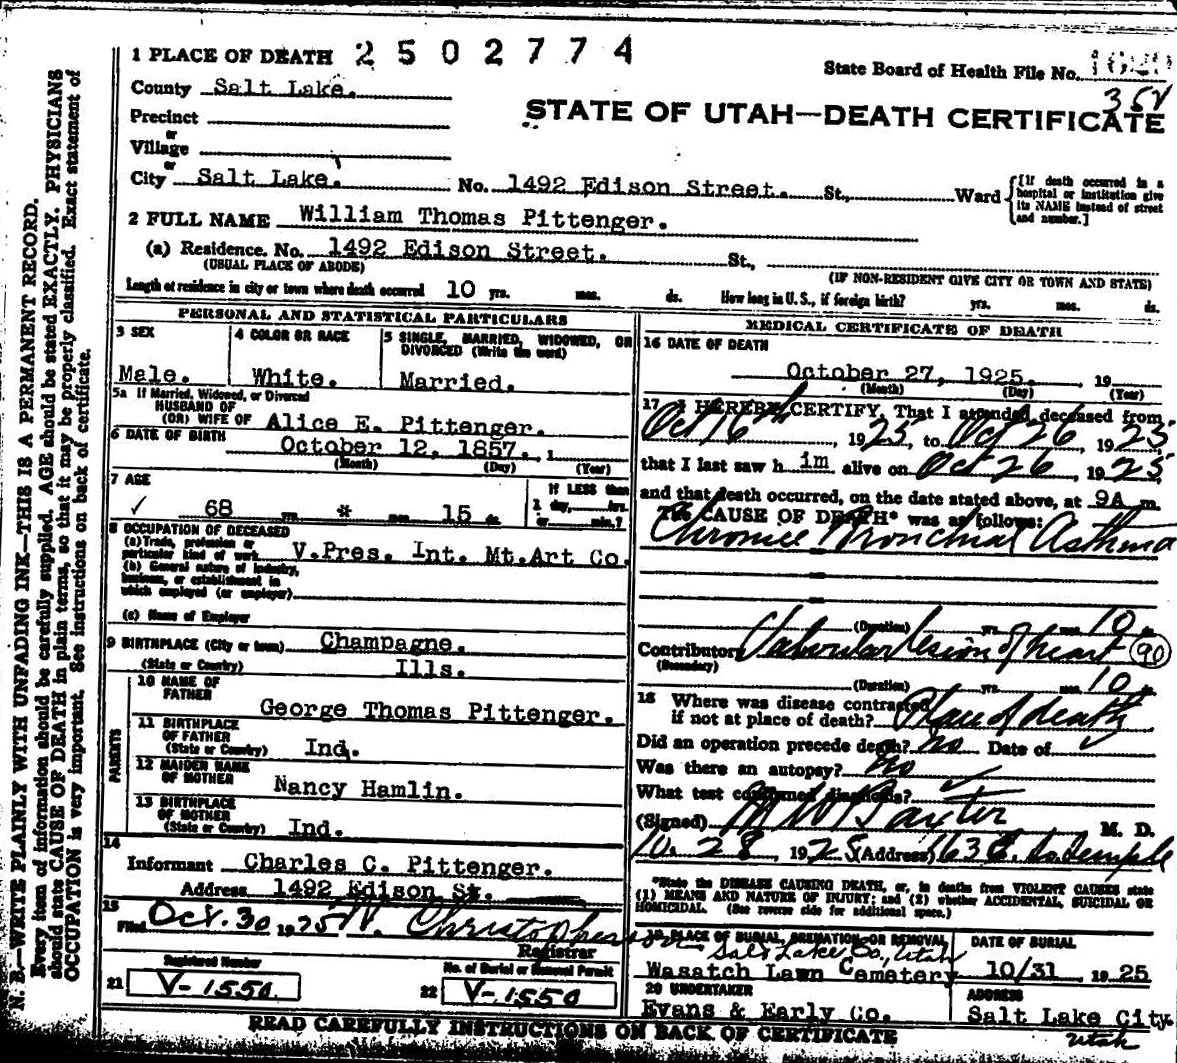 1 PLACE OF DEATH 2502774
State Board of Health File No.
County Salt Lake.
35V
STATE OF UTAH—DEATH CERTIFICATE
Precinct
or
Village
or
City Salt Lake. No. 1492 Edison Street. St., Ward
[If death occurred in a
hospital or institution give
its NAME instead of street
and number.]
2 FULL NAME William Thomas Pittenger.
(a) Residence. No. 1492 Edison Street. St.,
(USUAL PLACE OF ABODE) (IF NON-RESIDENT GIVE CITY OR TOWN AND STATE)
Length of residence in city or town where death occurred 10 yrs. mos. ds. How long in U. S., if foreign birth? yrs. mos. ds.
PERSONAL AND STATISTICAL PARTICULARS
3 SEX
Male.
4 COLOR OR RACE
White.
5 SINGLE, MARRIED, WIDOWED, OR
DIVORCED (Write the word)
Married.
5a If Married, Widowed, or Divorced
HUSBAND OF
(OR) WIFE OF Alice E. Pittenger.
6 DATE OF BIRTH October 12, 1857. 1
(Month) (Day) (Year)
7 AGE
✓ 68 yrs * mos. 15 ds.
If LESS than
1 day, hrs.
or min.?
8 OCCUPATION OF DECEASED
(a) Trade, profession or
particular kind of work V.Pres. Int. Mt.Art Co.
(b) General nature of industry,
business, or establishment in
which employed (or employer)
(c) Name of Employer
9 BIRTHPLACE (City or town) Champagne.
(State or Country) Ills.
PARENTS
10 NAME OF
FATHER
George Thomas Pittenger.
11 BIRTHPLACE
OF FATHER
(State or Country) Ind.
12 MAIDEN NAME
OF MOTHER Nancy Hamlin.
13 BIRTHPLACE
OF MOTHER
(State or Country) Ind.
14
Informant Charles C. Pittenger.
Address 1492 Edison St.
15
Filed Oct. 30 1925 W. Christopherson
Registrar
Registered Number
21 V-1550
No. of Burial or Removal Permit
22 V-1550
MEDICAL CERTIFICATE OF DEATH
16 DATE OF DEATH
October 27, 1925. , 19
(Month) (Day) (Year)
17 I HEREBY CERTIFY, That I attended deceased from
Oct 16th , 1925, to Oct 26, 1925
that I last saw h im alive on Oct 26 , 1925
and that death occurred, on the date stated above, at 9A m.
The CAUSE OF DEATH* was as follows:
Chronic Bronchial Asthma
(Duration) yrs. mos. 10
Contributory Valvular lesion of heart 90
(Secondary)
(Duration) yrs. mos. 10
18 Where was disease contracted
if not at place of death? Place of death
Did an operation precede death? no Date of ✓
Was there an autopsy? no
What test confirmed diagnosis? ✓
(Signed) M W Baxter M. D.
10. 28 , 1925 (Address) 163 E. So. Temple
*State the DISEASE CAUSING DEATH, or, in deaths from VIOLENT CAUSES state
(1) MEANS AND NATURE OF INJURY; and (2) whether ACCIDENTAL, SUICIDAL OR
HOMICIDAL. (See reverse side for additional space.)
19 PLACE OF BURIAL, CREMATION OR REMOVAL
Salt Lake Co., Utah
Wasatch Lawn Cemetery
DATE OF BURIAL
10/31 , 1925
20 UNDERTAKER
Evans & Early Co.
ADDRESS
Salt Lake City.
Utah
READ CAREFULLY INSTRUCTIONS ON BACK OF CERTIFICATE
N. B.—WRITE PLAINLY WITH UNFADING INK—THIS IS A PERMANENT RECORD.
Every item of information should be carefully supplied. AGE should be stated EXACTLY. PHYSICIANS
should state CAUSE OF DEATH in plain terms, so that it may be properly classified. Exact statement of
OCCUPATION is very important. See instructions on back of certificate.